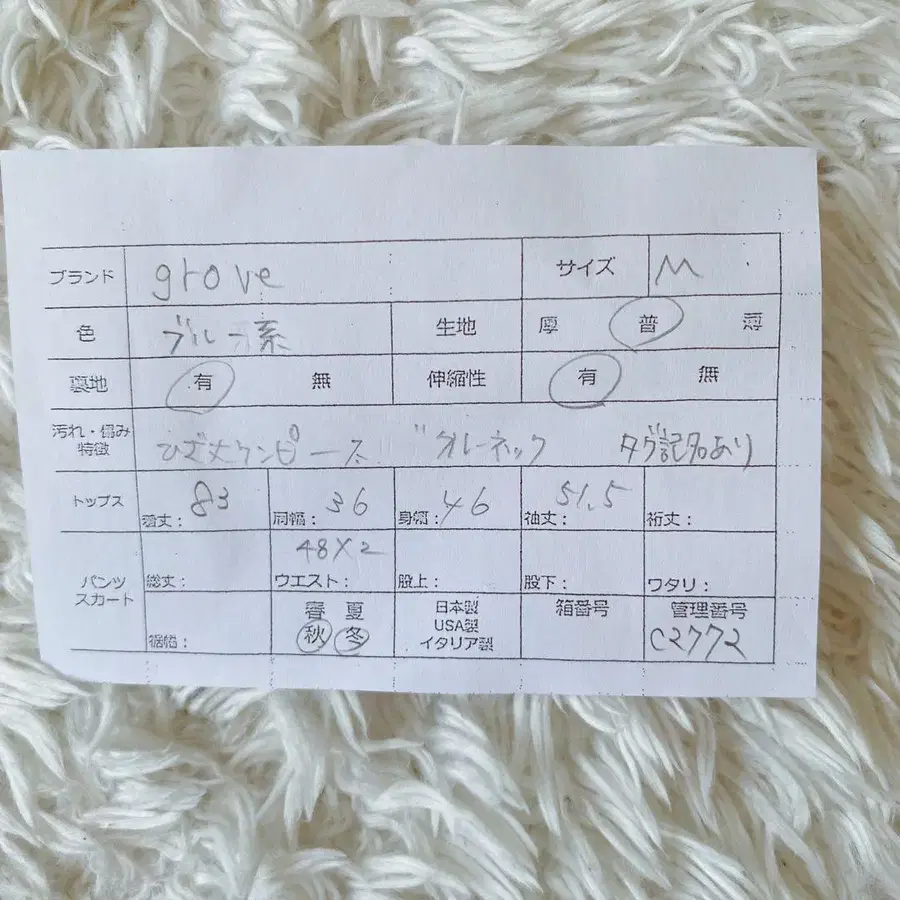 ブランド grove サイズ M
色 ブルー系 生地 厚 普 薄
裏地 有 無 伸縮性 有 無
汚れ・傷み
特徴 ひざ丈ワンピース クルーネック タグ記名あり
トップス 着丈: 83 肩幅: 36 身幅: 46 袖丈: 51.5 裄丈:
パンツ
スカート 総丈: ウエスト: 48×2 股上: 股下: ワタリ:
裾幅: 春 夏
秋 冬
日本製
USA製
イタリア製
箱番号
管理番号
C2772